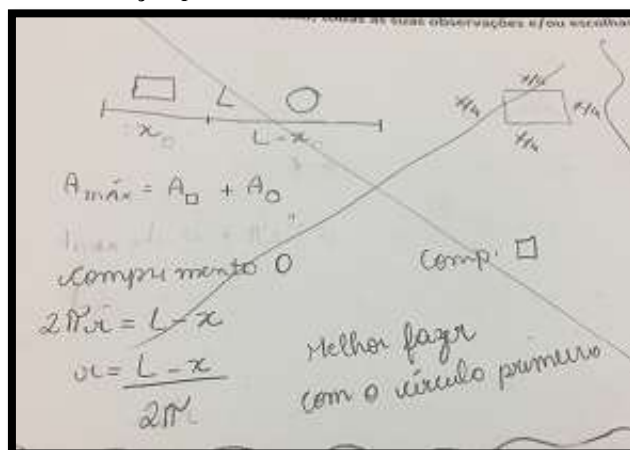 todas as suas observações e/ou escolhas
□ L ○
x₀ L - x₀
x/4
x/4 x/4
x/4
A máx = A□ + A○
comprimento O
Comp. □
2πr = L - x
r = L - x
2π
Melhor fazer
com o círculo primeiro